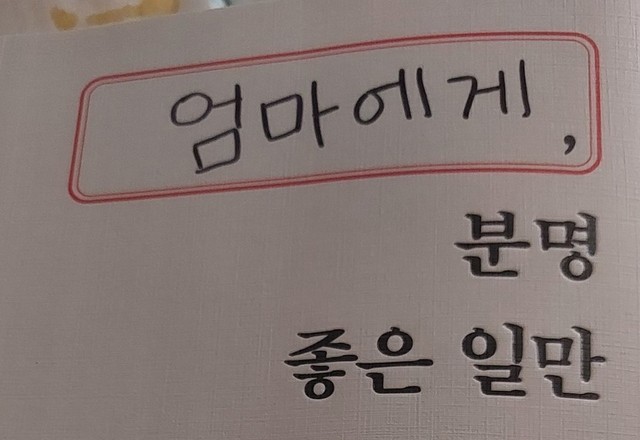 엄마에게,
분명
좋은 일만